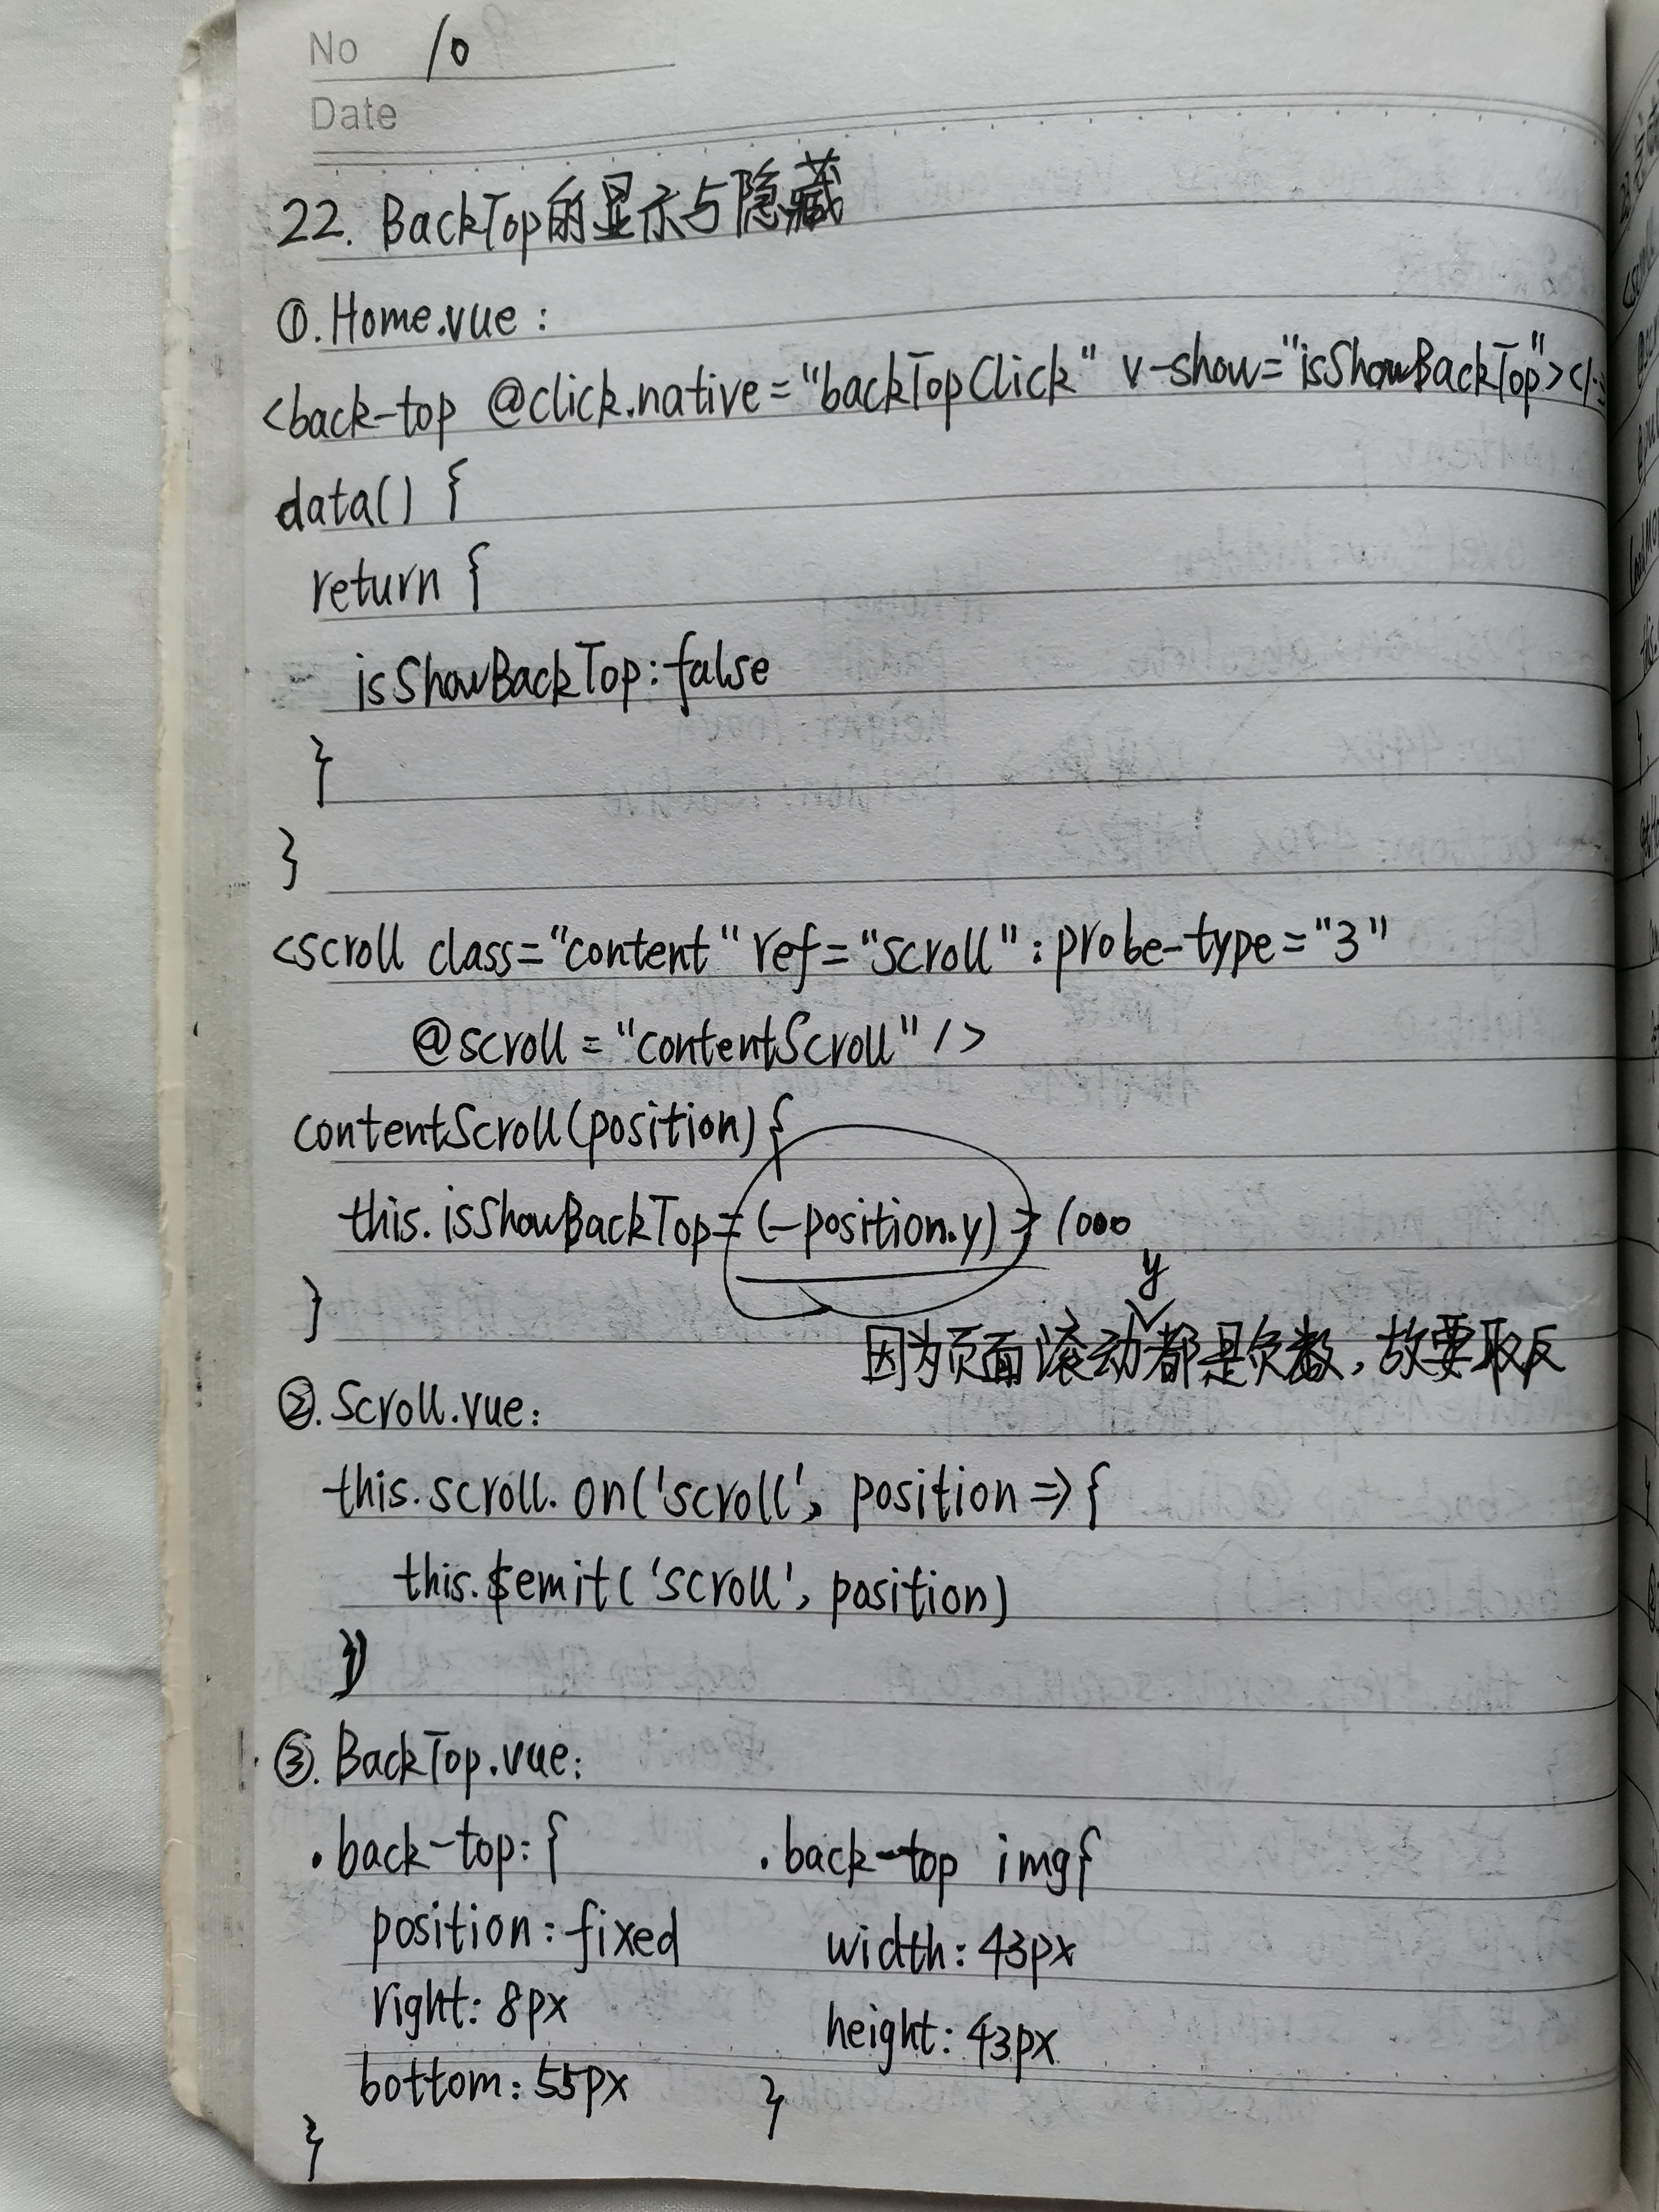 No 10
Date
22. BackTop的显示与隐藏
①. Home.vue :
<back-top @click.native="backTopClick" v-show="isShowBackTop"></
data() {
return {
isShowBackTop: false
}
}
<scroll class="content" ref="scroll" :probe-type="3"
@scroll="contentScroll" />
contentScroll(position) {
this.isShowBackTop = (-position.y) > 1000
}
因为页面滚动y都是负数,故要取反
②. Scroll.vue:
this.scroll.on('scroll', position => {
this.$emit('scroll', position)
})
③. BackTop.vue:
.back-top: {
position: fixed
right: 8px
bottom: 55px
}
.back-top img{
width: 43px
height: 43px
}